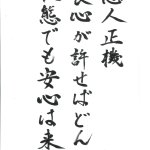 悪人正機
良心が許せばどん
態でも安心は来